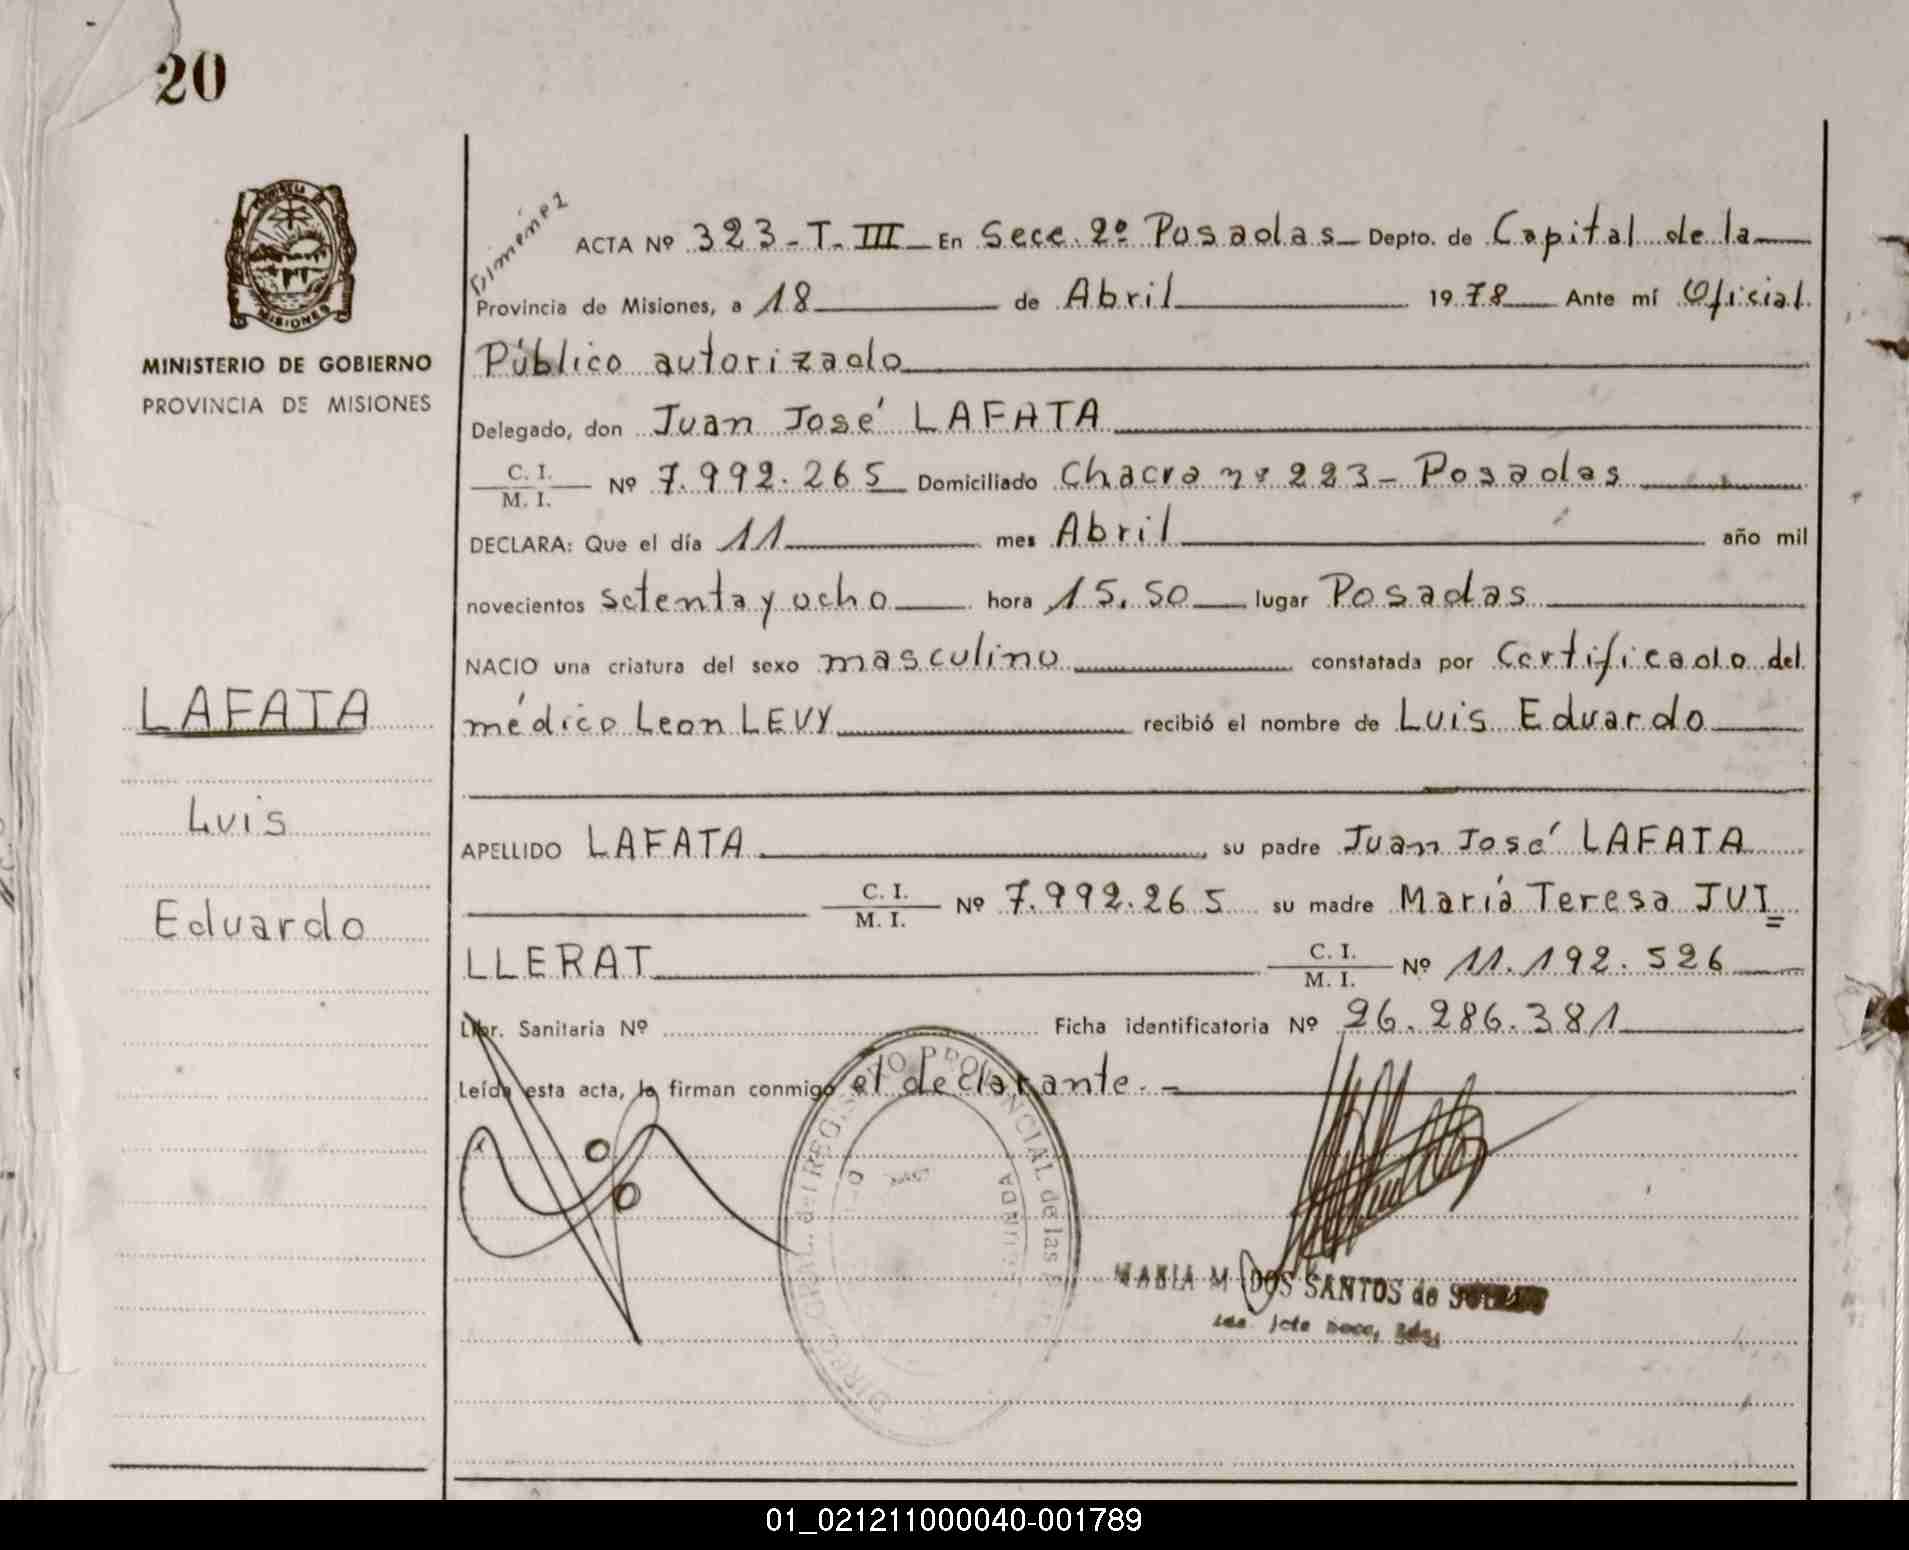 20
MINISTERIO DE GOBIERNO
PROVINCIA DE MISIONES
LAFATA
Luis
Eduardo
ACTA Nº 323-T. III En Secc. 2º Posadas Depto. de Capital de la
Provincia de Misiones, a 18 de Abril 1978 Ante mí Oficial
Público autorizado
Delegado, don Juan José LAFATA
C. I.
M. I. Nº 7.992.265 Domiciliado Chacra nº 223- Posadas
DECLARA: Que el día 11 mes Abril año mil
novecientos setenta y ocho hora 15.50 lugar Posadas
NACIO una criatura del sexo masculino constatada por Certificado del
médico Leon LEVY recibió el nombre de Luis Eduardo
APELLIDO LAFATA, su padre Juan José LAFATA
C. I.
M. I. Nº 7.992.265 su madre María Teresa JUI=
LLERAT C. I.
M. I. Nº 11.192.526
Libr. Sanitaria Nº Ficha identificatoria Nº 26.286.381
Leída esta acta, la firman conmigo el declarante.-
DIREC. GRAL. del REGISTRO PROVINCIAL de las
MARIA M. DOS SANTOS de
01_021211000040-001789